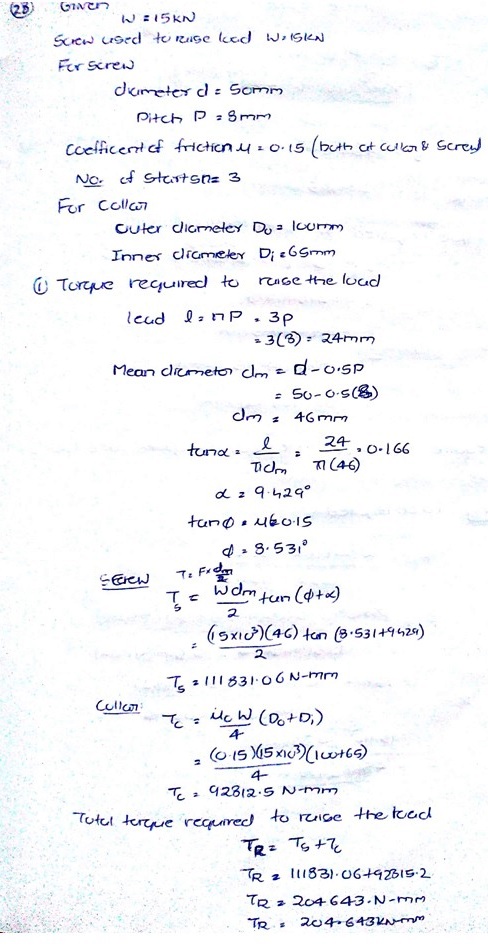 (28) Given
W = 15KN
Screw used to raise load W=15KN
For screw
diameter d = 50mm
Pitch P = 8mm
Coefficent of friction μ = 0.15 (both at collar & Screw)
No. of starts n= 3
For Collar
Outer diameter Do = 100mm
Inner diameter Di = 65mm
① Torque required to raise the load
lead l = nP = 3p
= 3(8) = 24mm
Mean diameter dm = d - 0.5P
= 50 - 0.5(8)
dm = 46mm
tanα = l/πdm = 24/π(46) = 0.166
α = 9.429°
tanφ = μ = 0.15
φ = 8.531°
Screw T = F × dm/2
Ts = Wdm/2 tan(φ+α)
= (15×10³)(46)/2 tan(8.531+9.429)
Ts = 111831.06 N-mm
Collar:
Tc = μcW/4 (Do+Di)
= (0.15)(15×10³)(100+65)/4
Tc = 92812.5 N-mm
Total torque required to raise the load
TR = Ts + Tc
TR = 111831.06+92815.2
TR = 204643.N-mm
TR = 204.643KN-mm